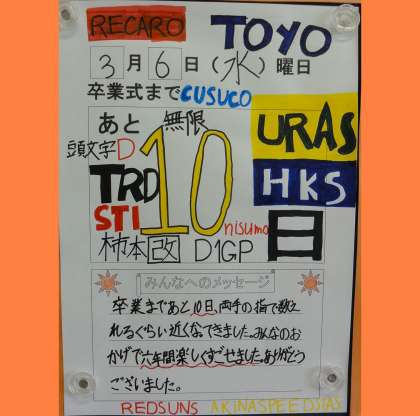 RECARO TOYO
3月6日(水)曜日
卒業式までCUSUCO
あと 無限 URAS
頭文字D
TRD 10 HKS
STI nisumo 日
柿本改 D1GP
みんなへのメッセージ
卒業まであと10日、両手の指で数え
れるぐらい近くなってきました。みんなのお
かげで六年間楽しくすごせました。ありがとう
ございました。
REDSUNS AKINASPEEDSTAS